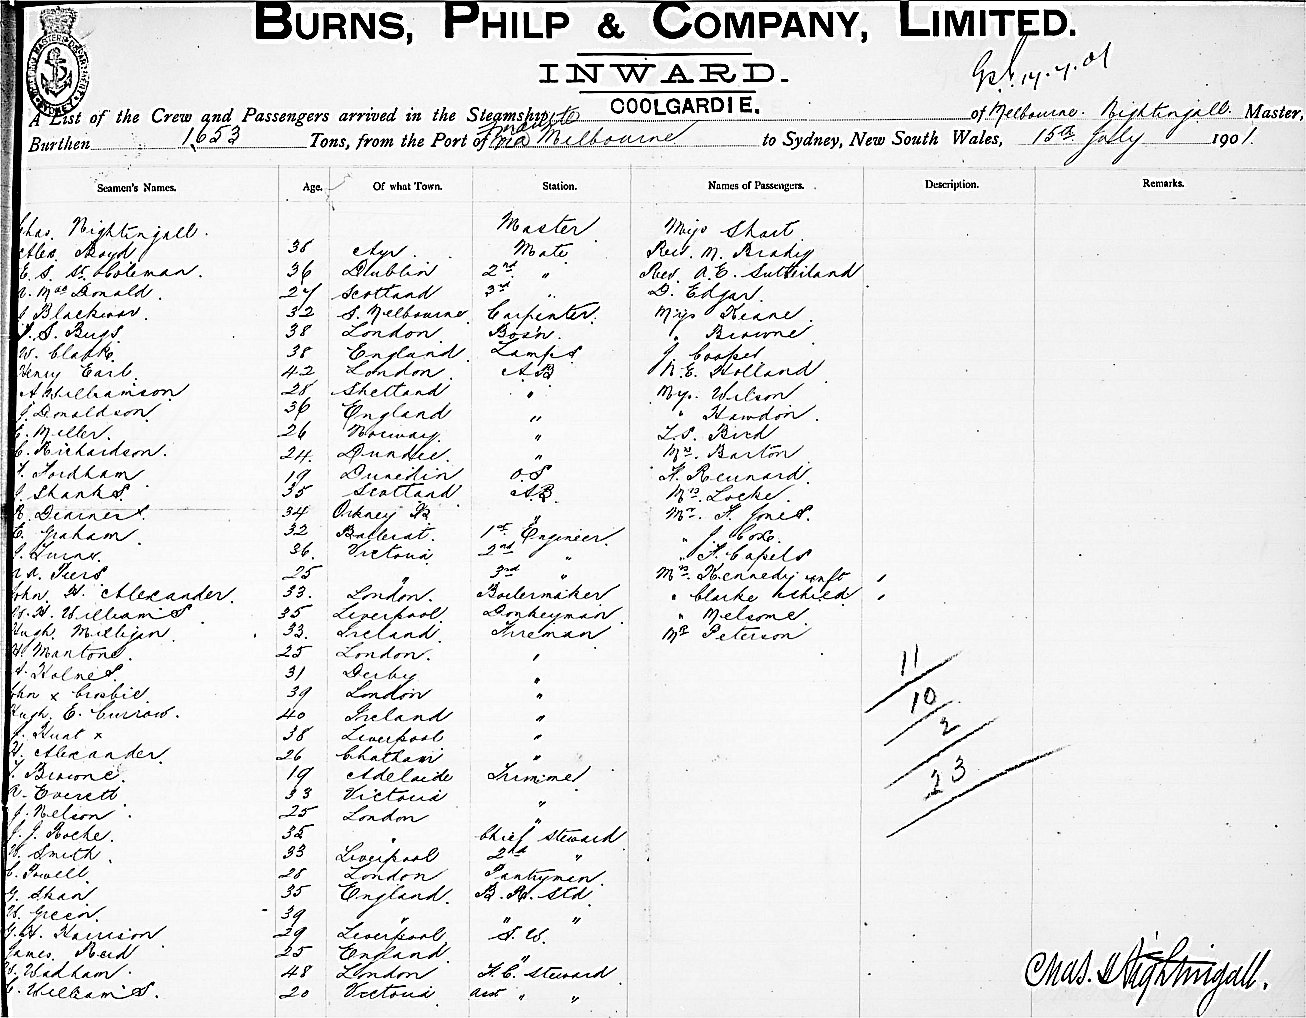 BURNS, PHILP & COMPANY, LIMITED.
INWARD.
COOLGARDIE.
A List of the Crew and Passengers arrived in the Steamship of Melbourne. Nightingall. Master,
Burthen 1653 Tons, from the Port of Fremantle via Melbourne to Sydney, New South Wales, 15th July 1901.
Seamen's Names. Age. Of what Town. Station. Names of Passengers. Description. Remarks.
Chas. Nightingall. Master Miss Short
Alex. Boyd 38 Ayr. Mate Rev. M. Brady
E. S. St. Coleman. 36 Dublin 2nd " Rev. A. E. Sutherland
MacDonald. 27 Scotland 3rd " D. Edgar.
Blackwood. 32 S. Melbourne Carpenter. Miss Keane
S. Bugs 38 London. Bosn. " Browne
W. Clark. 38 England. Lamps J. Cooper
Henry Earl. 42 London. AB N. E. Holland
A Williamson 28 Shetland " Miss Wilson
J. Donaldson 36 England " " Hawdon.
E. Miller. 26 Norway. " L. S. Bird
C. Richardson. 24 Dundee. " Mrs. Barton
T. Fordham 19 Dunedin O.S F. Rennard.
J. Shanks. 35 Scotland A.B. Mrs. Locke.
R. 34 Orkney Mr. F. Jones.
E. Graham. 32 Ballarat. 1st Engineer. " J. Cox.
J. Turner. 36. Victoria 2nd " " F. Capels
A. Tiers 25 " 3rd " Mrs. Kennedy inft
John H. Alexander. 33. London. Boilermaker " Clarke & child
W. H. Williams 35 Liverpool. Donkeyman " Nelsome
Hugh. Milligan. 33. Ireland. Fireman Mr Peterson
H. Manton 25 London. "
Holmes. 31 Derby "
John x Crosbie 39 London "
Hugh. E. Currow. 40 Ireland "
J. Hunt x 38 Liverpool "
H. Alexander. 26 Chatham "
T. Browne. 19 Adelaide Trimmer
A. Everett 33 Victoria "
J. Nelson 25 London "
J. J. Roche. 35 " Chief Steward
W. Smith. 33 Liverpool 2nd "
C. Powell. 28 London Pantryman.
G. Shan 35 England. B. R. Std.
W. Green. 39 " " "
G. H. Harrison 29 Liverpool S. W.
James. Reid 25 England. "
Wadham. 48 London F. C. Steward
C. Williams. 20 Victoria. Asst " "
11
10
2
23
Chas. Nightingall.